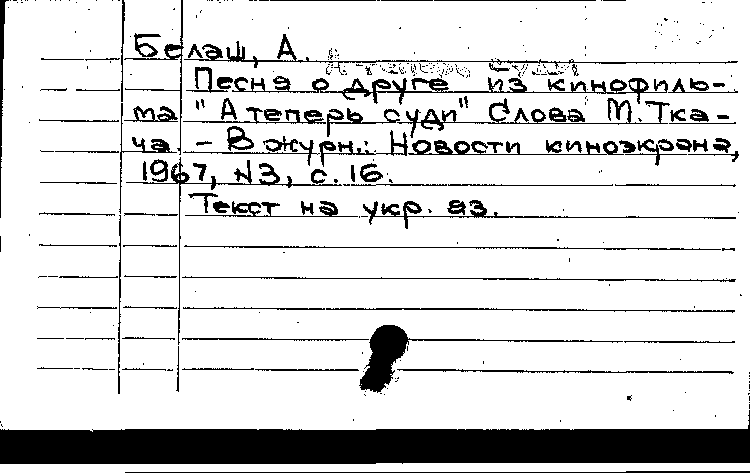 Белаш, А.
А теперь суди
Песня о друге из кинофиль-
ма "А теперь суди" Слова М. Тка-
ча. - В журн.: Новости киноэкрана,
1967, №3, с. 16.
Текст на укр. яз.